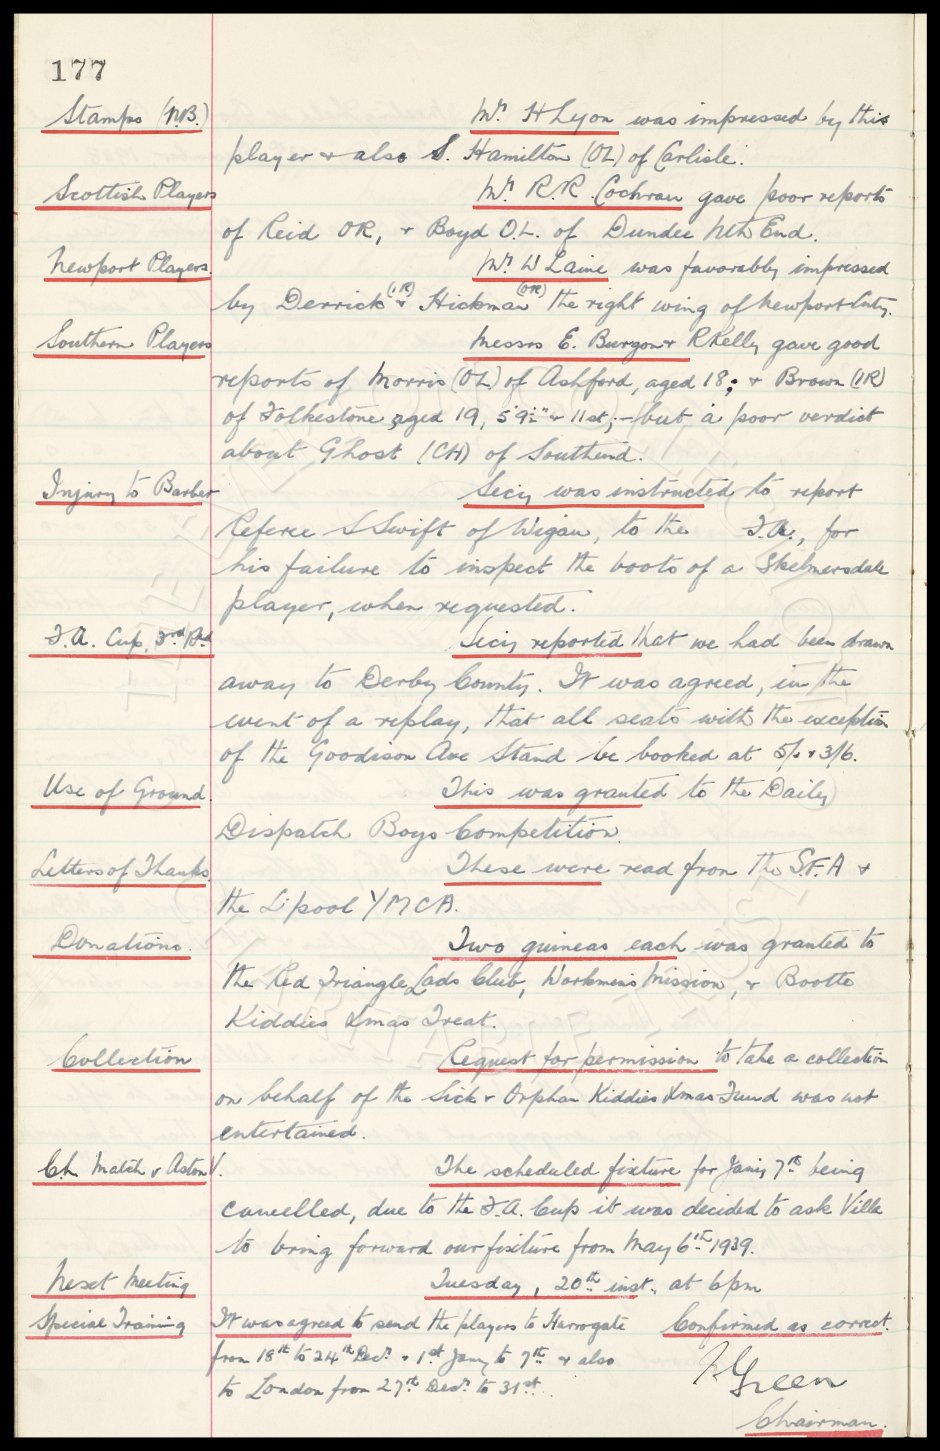 177
Stamps (N.B.) Mr. H Lyon was impressed by this
player & also S. Hamilton (OL) of Carlisle.
Scottish Players Mr. R.R. Cochran gave poor reports
of Reid OR, & Boyd O.L. of Dundee Nth End.
Newport Players. Mr. W Laine was favorably impressed
by Derrick (IR) & Hickman (OR) the right wing of Newport Cnty.
Southern Players Messrs E. Burgon & R Kelly gave good
reports of Morris (OL) of Ashford, aged 18; & Brown (IR)
of Folkestone aged 19, 5'9½" & 11st; - but a poor verdict
about Ghost (CH) of Southend.
Injury to Barber Secy was instructed to report
Referee S Swift of Wigan, to the F.A., for
his failure to inspect the boots of a Skelmersdale
player, when requested.
F.A. Cup, 3rd Rd Secy reported that we had been drawn
away to Derby County. It was agreed, in the
event of a replay, that all seats with the exception
of the Goodison Ave Stand be booked at 5/- & 3/6.
Use of Ground. This was granted to the Daily
Dispatch Boys Competition.
Letters of Thanks. These were read from the S.F.A &
the L'pool YMCA.
Donations. Two guineas each was granted to
the Red Triangle, Lads Club, Workmens Mission, & Bootle
Kiddies Xmas Treat.
Collection Request for permission to take a collection
on behalf of the Sick & Orphan Kiddies Xmas Fund was not
entertained.
Ch. Match v Aston V. The scheduled fixture for Jany 7th being
cancelled, due to the F.A. Cup it was decided to ask Villa
to bring forward our fixture from May 6th 1939.
Next Meeting Tuesday, 20th inst. at 6pm
Special Training It was agreed to send the players to Harrogate Confirmed as correct.
from 18th to 24th Decr. & 1st Jany to 7th & also
to London from 27th Decr. to 31st.
Green
Chairman.